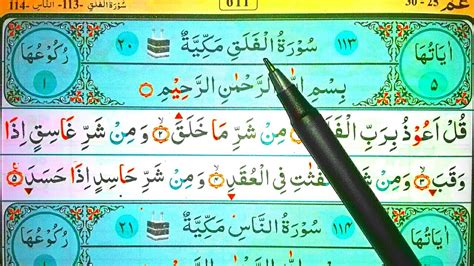 عم 30 - 25 611 سُوْرَةُ الْفَلَقِ -113- النَّاسِ -114
اٰيَاتُهَا ١١٣ سُوْرَةُ الْفَلَقِ مَكِّيَّةٌ ٢٠ رُكُوْعُهَا
٥ بِسْمِ اللّٰهِ الرَّحْمٰنِ الرَّحِيْمِ ١
قُلْ اَعُوْذُ بِرَبِّ مِنْ شَرِّ مَا خَلَقَ ۙ وَمِنْ شَرِّ غَاسِقٍ اِذَا
وَقَبَ ۙ وَمِنْ فِي الْعُقَدِ ۙ وَمِنْ شَرِّ حَاسِدٍ اِذَا حَسَدَ
اٰيَاتُهَا ١١٤ سُوْرَةُ النَّاسِ مَكِّيَّةٌ ٢١ رُكُوْعُهَا